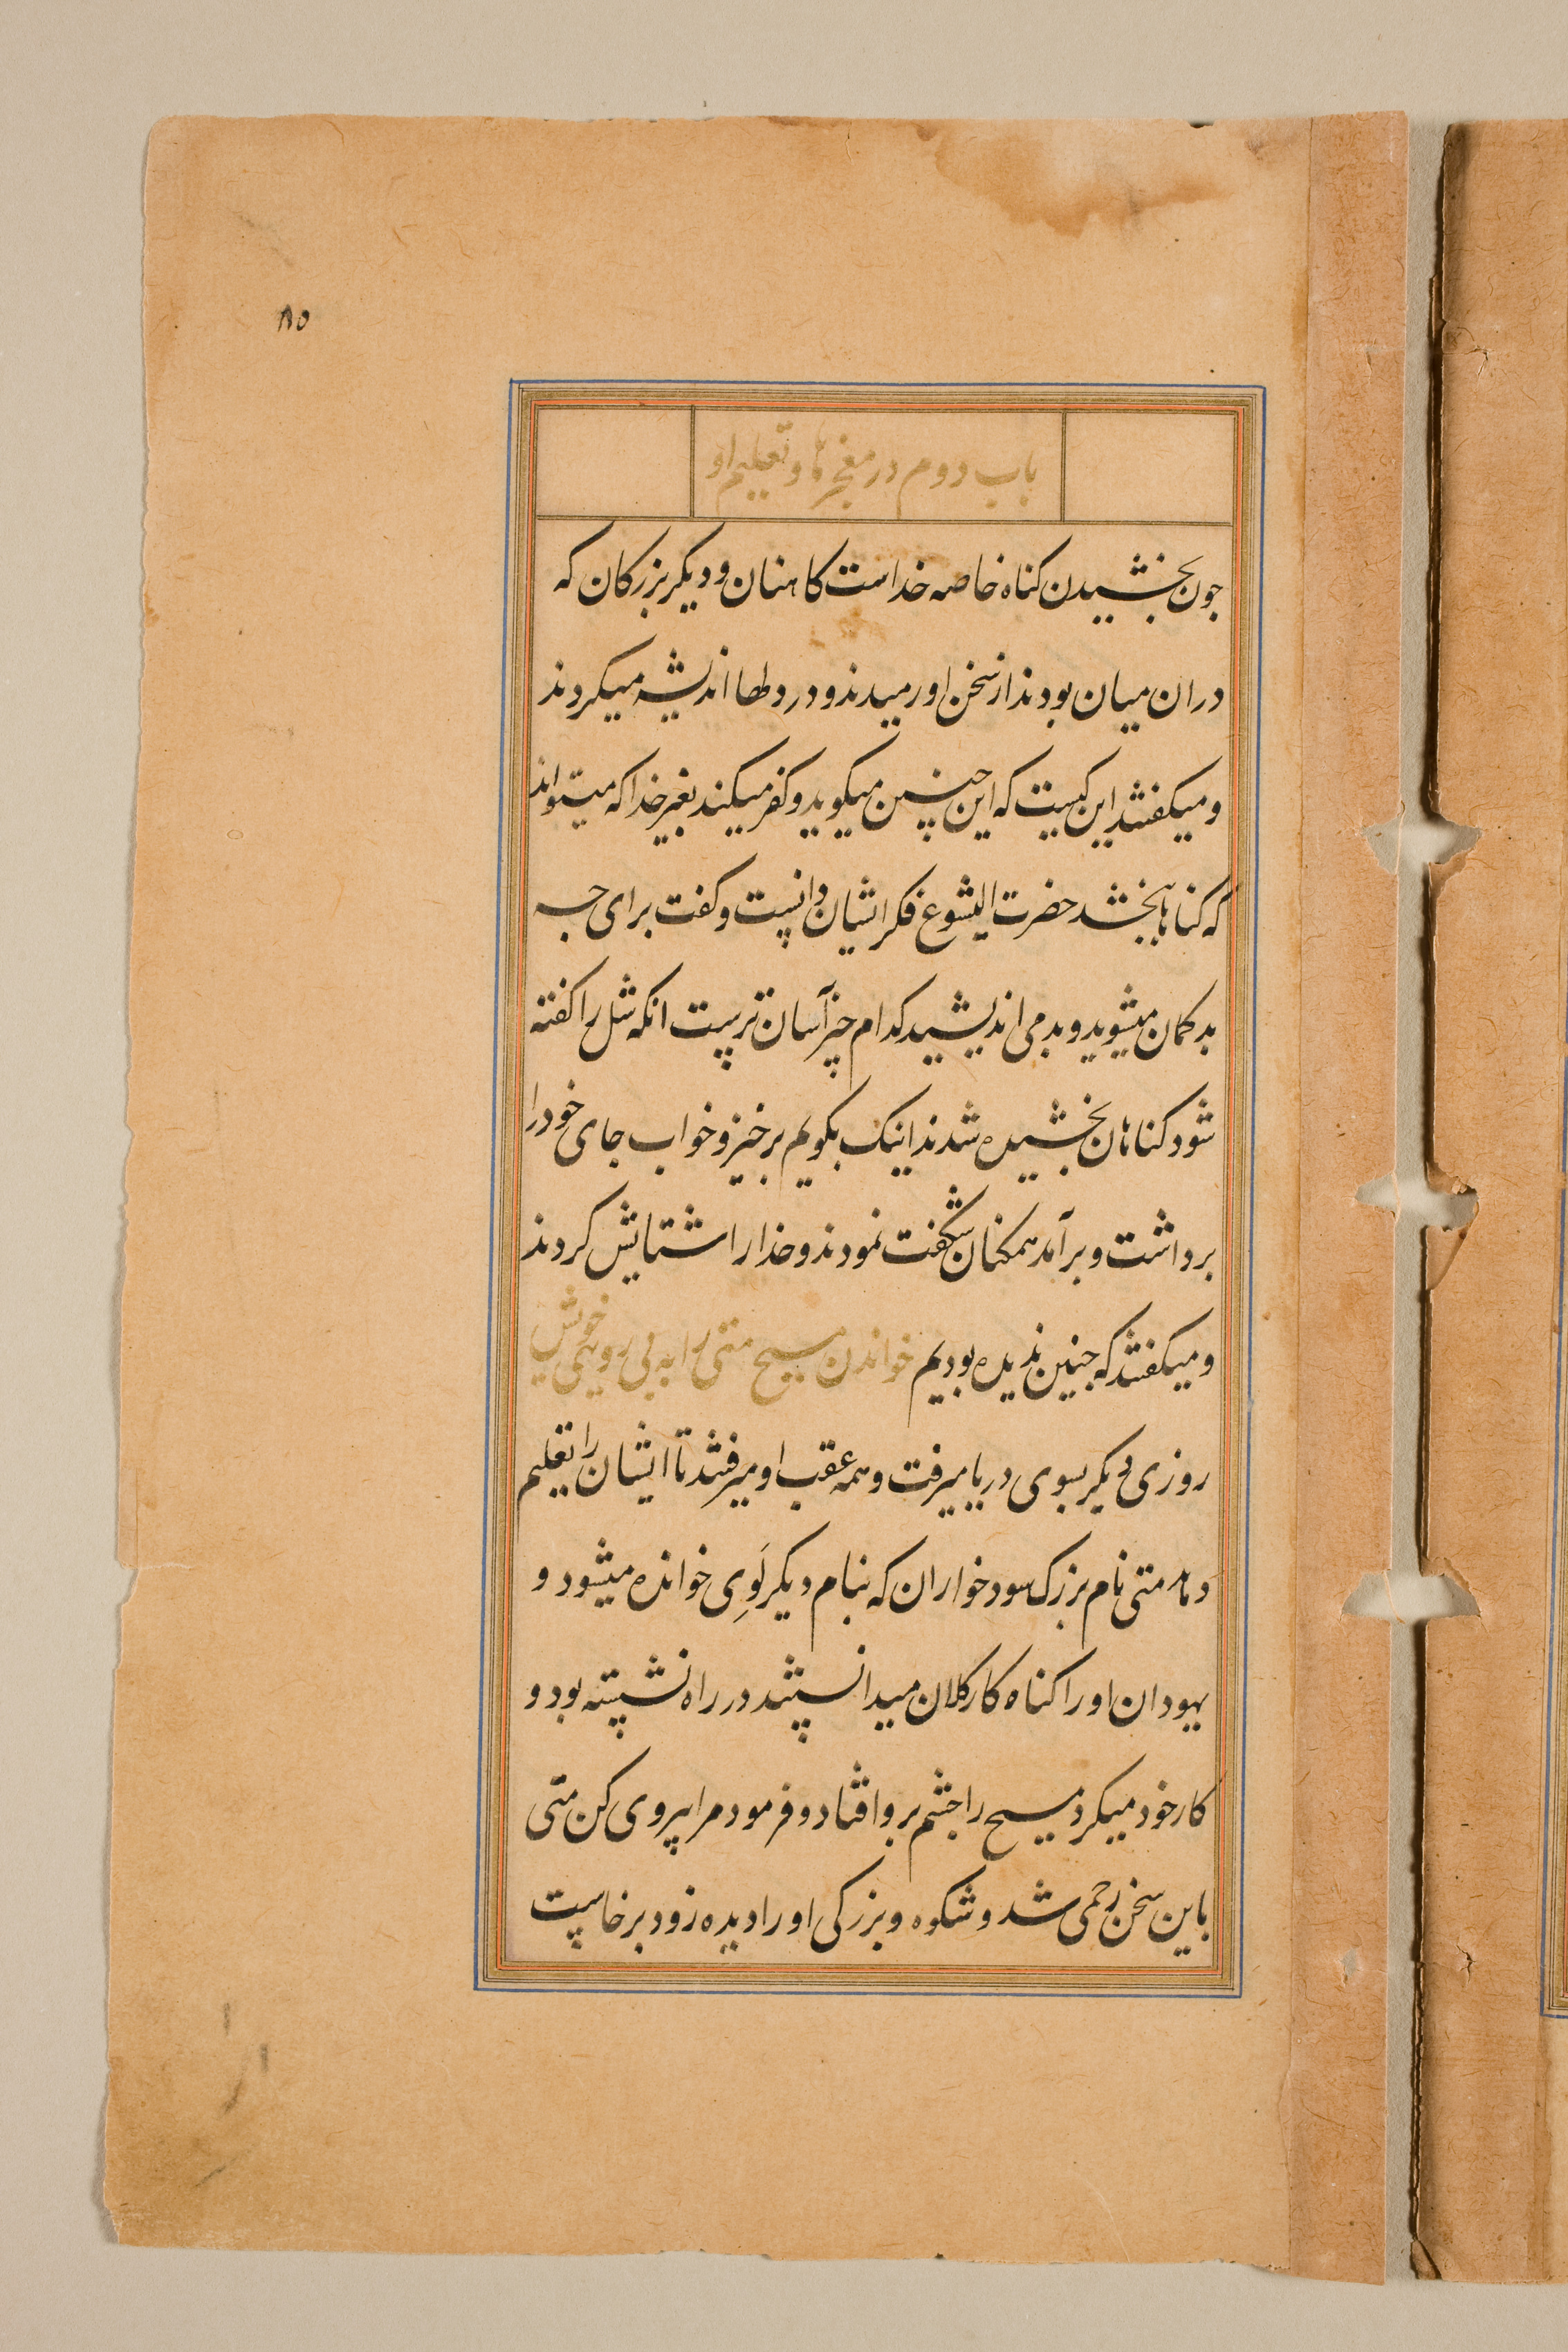 ۸۵
باب دوم در معجزها و تعلیم او
جون بخشیدن کناه خاصه خداست کاهنان و دیکر بزرکان که
دران میان بودند از سخن او رمیدند و در دلها اندیشه میکردند
و میکفتند این کیست که این چنین میکوید و کفر میکند بغیر خدا که میتواند
که کناها بخشد حضرت ایشوع فکر ایشان دانست و کفت برای جه
بد کمان میشوید و بد می اندیشید کدام چیز آسان ترست انکه شل را کفته
شود کناهان بخشیده شدند اینک بکویم برخیز و خواب جای خود را
برداشت و برآمد همکنان شکفت نمودند و خدا را ستایش کردند
و میکفتند که جنین ندیده بودیم خواندن مسیح متی را به پی رویی خویش
روزی دیکر بسوی دریا میرفت و همه عقب او میرفتند تا ایشان را تعلیم
دهد متی نام بزرک سود خواران که بنام دیکر لَوِی خوانده میشود و
یهودان او را کناه کار کلان میدانستند در راه نشسته بود و
کار خود میکرد مسیح را جشم برو افتاد و فرمود مرا پیروی کن متی
باین سخن زخمی شد و شکوه و بزرکی او را دیده زود برخاست